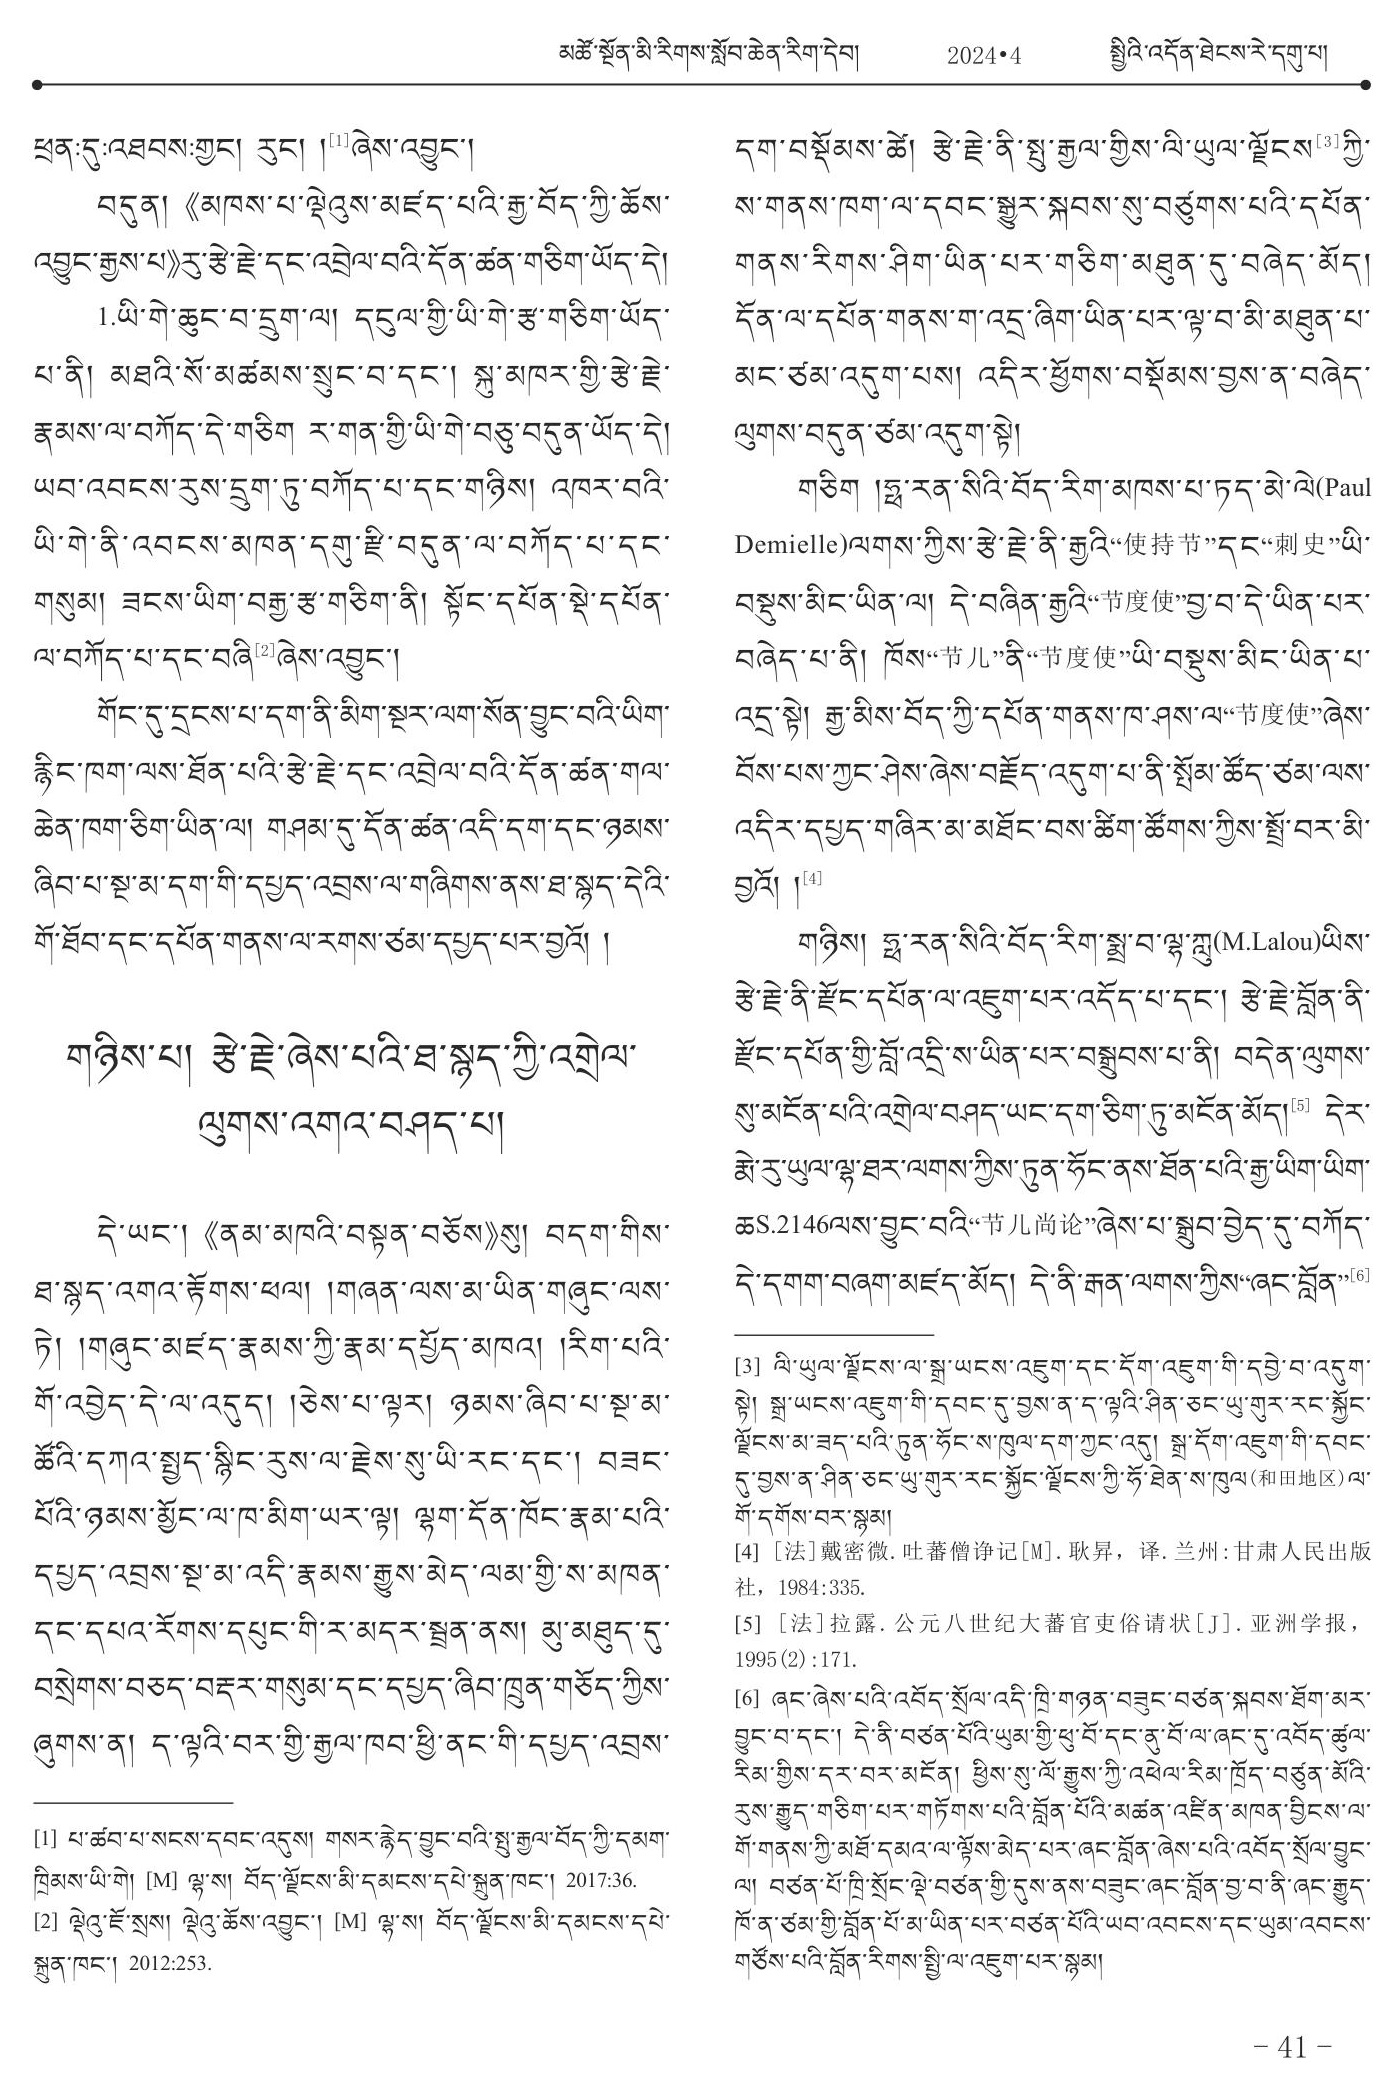 མཚོ་སྔོན་མི་རིགས་སློབ་ཆེན་རིག་དེབ། 2024•4 སྤྱིའི་འདོན་ཐེངས་རེ་དགུ་པ།
ཕྲན:དུ་འཐབས:ཀྱང། རུང། །[1]ཞེས་འབྱུང་།
བདུན། 《མཁས་པ་ལྡེའུས་མཛད་པའི་རྒྱ་བོད་ཀྱི་ཆོས་
འབྱུང་རྒྱས་པ》རུ་རྩེ་རྗེ་དང་འབྲེལ་བའི་དོན་ཚན་གཅིག་ཡོད་དེ།
1.ཡི་གེ་ཆུང་བ་དྲུག་ལ། དངུལ་གྱི་ཡི་གེ་རྩ་གཅིག་ཡོད་
པ་ནི། མཐའི་སོ་མཚམས་སྲུང་བ་དང་། སྐུ་མཁར་གྱི་རྩེ་རྗེ་
རྣམས་ལ་བཀོད་དེ་གཅིག ར་གན་གྱི་ཡི་གེ་བཅུ་བདུན་ཡོད་དེ།
ཡབ་འབངས་རུས་དྲུག་ཏུ་བཀོད་པ་དང་གཉིས། འཁར་བའི་
ཡི་གེ་ནི་འབངས་མཁན་དགུ་རྫི་བདུན་ལ་བཀོད་པ་དང་
གསུམ། ཟངས་ཡིག་བརྒྱ་རྩ་གཅིག་ནི། སྟོང་དཔོན་སྡེ་དཔོན་
ལ་བཀོད་པ་དང་བཞི[2]ཞེས་འབྱུང་།
གོང་དུ་དྲངས་པ་དག་ནི་མིག་སྔར་ལག་སོན་བྱུང་བའི་ཡིག་
རྙིང་ཁག་ལས་ཐོན་པའི་རྩེ་རྗེ་དང་འབྲེལ་བའི་དོན་ཚན་གལ་
ཆེན་ཁག་ཅིག་ཡིན་ལ། གཤམ་དུ་དོན་ཚན་འདི་དག་དང་ཉམས་
ཞིབ་པ་སྔ་མ་དག་གི་དཔྱད་འབྲས་ལ་གཞིགས་ནས་ཐ་སྙད་དེའི་
གོ་ཐོབ་དང་དཔོན་གནས་ལ་རགས་ཙམ་དཔྱད་པར་བྱའོ། །
གཉིས་པ། རྩེ་རྗེ་ཞེས་པའི་ཐ་སྙད་ཀྱི་འགྲེལ་
ལུགས་འགའ་བཤད་པ།
དེ་ཡང་། 《ནམ་མཁའི་བསྟན་བཅོས》སུ། བདག་གིས་
ཐ་སྙད་འགའ་རྟོགས་ཕལ། །གཞན་ལས་མ་ཡིན་གཞུང་ལས་
ཏེ། །གཞུང་མཛད་རྣམས་ཀྱི་རྣམ་དཔྱོད་མཁའ། །རིག་པའི་
གོ་འབྱེད་དེ་ལ་འདུད། །ཅེས་པ་ལྟར། ཉམས་ཞིབ་པ་སྔ་མ་
ཚོའི་དཀའ་སྤྱད་སྙིང་རུས་ལ་རྗེས་སུ་ཡི་རང་དང་། བཟང་
པོའི་ཉམས་མྱོང་ལ་ཁ་མིག་ཡར་ལྟ། ལྷག་དོན་ཁོང་རྣམ་པའི་
དཔྱད་འབྲས་སྔ་མ་འདི་རྣམས་རྒྱུས་མེད་ལམ་གྱི་ས་མཁན་
དང་དཔའ་རོགས་དཔུང་གི་ར་མདར་སྦྲན་ནས། མུ་མཐུད་དུ་
བསྲེགས་བཅད་བརྡར་གསུམ་དང་དཔྱད་ཞིབ་ཁྲུན་གཅོད་ཀྱིས་
ཞུགས་ན། ད་ལྟའི་བར་གྱི་རྒྱལ་ཁབ་ཕྱི་ནང་གི་དཔྱད་འབྲས་
[1] པ་ཚབ་པ་སངས་དབང་འདུས། གསར་རྙེད་བྱུང་བའི་སྤུ་རྒྱལ་བོད་ཀྱི་དམག་
ཁྲིམས་ཡི་གེ། [M] ལྷ་ས། བོད་ལྗོངས་མི་དམངས་དཔེ་སྐྲུན་ཁང་། 2017:36.
[2] ལྡེའུ་ཇོ་སྲས། ལྡེའུ་ཆོས་འབྱུང་། [M] ལྷ་ས། བོད་ལྗོངས་མི་དམངས་དཔེ་
སྐྲུན་ཁང་། 2012:253.
དག་བསྡོམས་ཚེ། རྩེ་རྗེ་ནི་སྤུ་རྒྱལ་གྱིས་ལི་ཡུལ་ལྗོངས[3]ཀྱི་
ས་གནས་ཁག་ལ་དབང་སྒྱུར་སྐབས་སུ་བཙུགས་པའི་དཔོན་
གནས་རིགས་ཤིག་ཡིན་པར་གཅིག་མཐུན་དུ་བཞེད་མོད།
དོན་ལ་དཔོན་གནས་ག་འདྲ་ཞིག་ཡིན་པར་ལྟ་བ་མི་མཐུན་པ་
མང་ཙམ་འདུག་པས། འདིར་ཕྱོགས་བསྡོམས་བྱས་ན་བཞེད་
ལུགས་བདུན་ཙམ་འདུག་སྟེ།
གཅིག །ཧྥ་རན་སིའི་བོད་རིག་མཁས་པ་ཏད་མེ་ལེ(Paul
Demielle)ལགས་ཀྱིས་རྩེ་རྗེ་ནི་རྒྱའི“使持节”དང“刺史”ཡི་
བསྡུས་མིང་ཡིན་ལ། དེ་བཞིན་རྒྱའི“节度使”བྱ་བ་དེ་ཡིན་པར་
བཞེད་པ་ནི། ཁོས“节儿”ནི“节度使”ཡི་བསྡུས་མིང་ཡིན་པ་
འདྲ་སྟེ། རྒྱ་མིས་བོད་ཀྱི་དཔོན་གནས་ཁ་ཤས་ལ“节度使”ཞེས་
བོས་པས་ཀྱང་ཤེས་ཞེས་བརྗོད་འདུག་པ་ནི་སྤོམ་ཚོད་ཙམ་ལས་
འདིར་དཔྱད་གཞིར་མ་མཐོང་བས་ཚིག་ཚོགས་ཀྱིས་སྤྲོ་བར་མི་
བྱའོ། །[4]
གཉིས། ཧྥ་རན་སིའི་བོད་རིག་སྨྲ་བ་ལྷ་ཀླུ(M.Lalou)ཡིས་
རྩེ་རྗེ་ནི་རྫོང་དཔོན་ལ་འཇུག་པར་འདོད་པ་དང་། རྩེ་རྗེ་བློན་ནི་
རྫོང་དཔོན་གྱི་བློ་འདྲི་ས་ཡིན་པར་བསྒྲུབས་པ་ནི། བདེན་ལུགས་
སུ་མངོན་པའི་འགྲེལ་བཤད་ཡང་དག་ཅིག་ཏུ་མངོན་མོད།[5] དེར་
རྨེ་རུ་ཡུལ་ལྷ་ཐར་ལགས་ཀྱིས་ཏུན་ཧོང་ནས་ཐོན་པའི་རྒྱ་ཡིག་ཡིག་
ཆS.2146ལས་བྱུང་བའི“节儿尚论”ཞེས་པ་སྒྲུབ་བྱེད་དུ་བཀོད་
དེ་དགག་བཞག་མཛད་མོད། དེ་ནི་རྒན་ལགས་ཀྱིས“ཞང་བློན”[6]
[3] ལི་ཡུལ་ལྗོངས་ལ་སྒྲ་ཡངས་འཇུག་དང་དོག་འཇུག་གི་དབྱེ་བ་འདུག་
སྟེ། སྒྲ་ཡངས་འཇུག་གི་དབང་དུ་བྱས་ན་ད་ལྟའི་ཤིན་ཅང་ཡུ་གུར་རང་སྐྱོང་
ལྗོངས་མ་ཟད་པའི་ཏུན་ཧོང་ས་ཁུལ་དག་ཀྱང་འདུ། སྒྲ་དོག་འཇུག་གི་དབང་
དུ་བྱས་ན་ཤིན་ཅང་ཡུ་གུར་རང་སྐྱོང་ལྗོངས་ཀྱི་ཧོ་ཐེན་ས་ཁུལ(和田地区)ལ་
གོ་དགོས་བར་སྙམ།
[4] [法]戴密微.吐蕃僧诤记[M].耿昇，译.兰州:甘肃人民出版
社，1984:335.
[5] [法]拉露.公元八世纪大蕃官吏俗请状[J].亚洲学报，
1995(2):171.
[6] ཞང་ཞེས་པའི་འབོད་སྲོལ་འདི་ཁྲི་གཉན་བཟུང་བཙན་སྐབས་ཐོག་མར་
བྱུང་བ་དང་། དེ་ནི་བཙན་པོའི་ཡུམ་གྱི་ཕུ་བོ་དང་ནུ་བོ་ལ་ཞང་དུ་འབོད་ཚུལ་
རིམ་གྱིས་དར་བར་མངོན། ཕྱིས་སུ་ལོ་རྒྱུས་ཀྱི་འཕེལ་རིམ་ཁྲོད་བཙུན་མོའི་
རུས་རྒྱུད་གཅིག་པར་གཏོགས་པའི་བློན་པོའི་མཚན་འཛིན་མཁན་བྱིངས་ལ་
གོ་གནས་ཀྱི་མཐོ་དམའ་ལ་ལྟོས་མེད་པར་ཞང་བློན་ཞེས་པའི་འབོད་སྲོལ་བྱུང་
ལ། བཙན་པོ་ཁྲི་སྲོང་ལྡེ་བཙན་གྱི་དུས་ནས་བཟུང་ཞང་བློན་བྱ་བ་ནི་ཞང་རྒྱུད་
ཁོ་ན་ཙམ་གྱི་བློན་པོ་མ་ཡིན་པར་བཙན་པོའི་ཡབ་འབངས་དང་ཡུམ་འབངས་
གཙོས་པའི་བློན་རིགས་སྤྱི་ལ་འཇུག་པར་སྙམ།
- 41 -